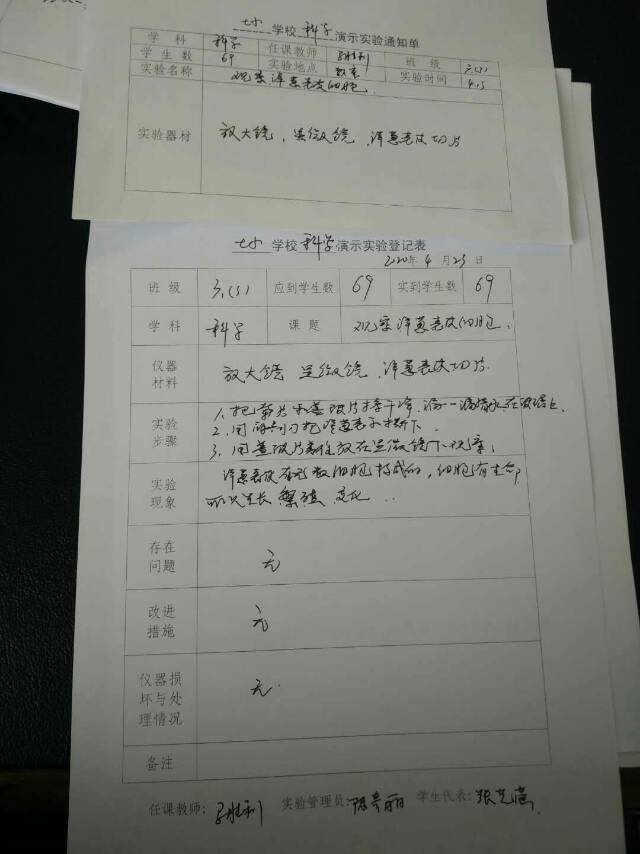 七小 学校 科学 演示实验通知单
学科 科学 任课教师 胜利 班级 六.(5)
学生数 69 实验地点 教室 实验时间 4.
实验名称 观察洋葱表皮细胞.
实验器材 放大镜、显微镜、洋葱表皮切片
七小 学校 科学 演示实验登记表
2020年 4月 23日
班级 六.(5) 应到学生数 69 实到学生数 69
学科 科学 课题 观察洋葱表皮细胞.
仪器材料 放大镜 显微镜、洋葱表皮切片.
实验步骤 1、把载片和盖玻片擦干净,滴一滴清水在玻璃上.
2、用 刀把洋葱表 下.
3、用盖玻片盖住放在显微镜下观察.
实验现象 洋葱表皮 细胞构成的,细胞有生命,
可以生长 繁殖 变化..
存在问题 无
改进措施 无
仪器损坏与处理情况 无.
备注
任课教师: 胜利 实验管理员: 陈秀丽 学生代表: 张艺